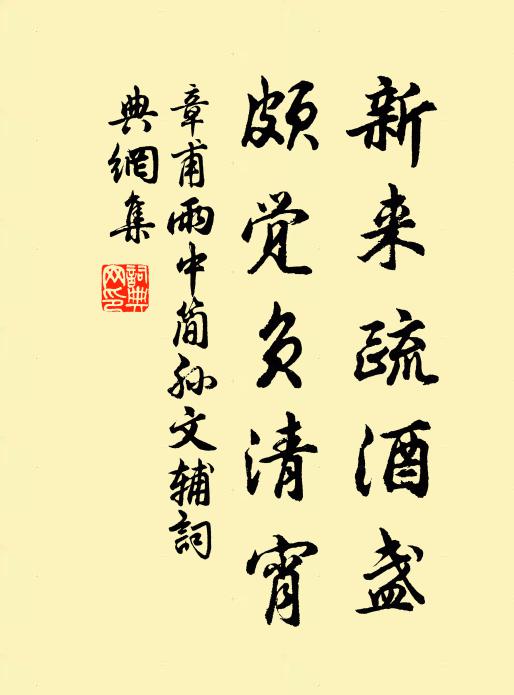 新来疏酒盏
颇觉负清宵
章甫雨中简孙文辅詞
典網集
詞典網印